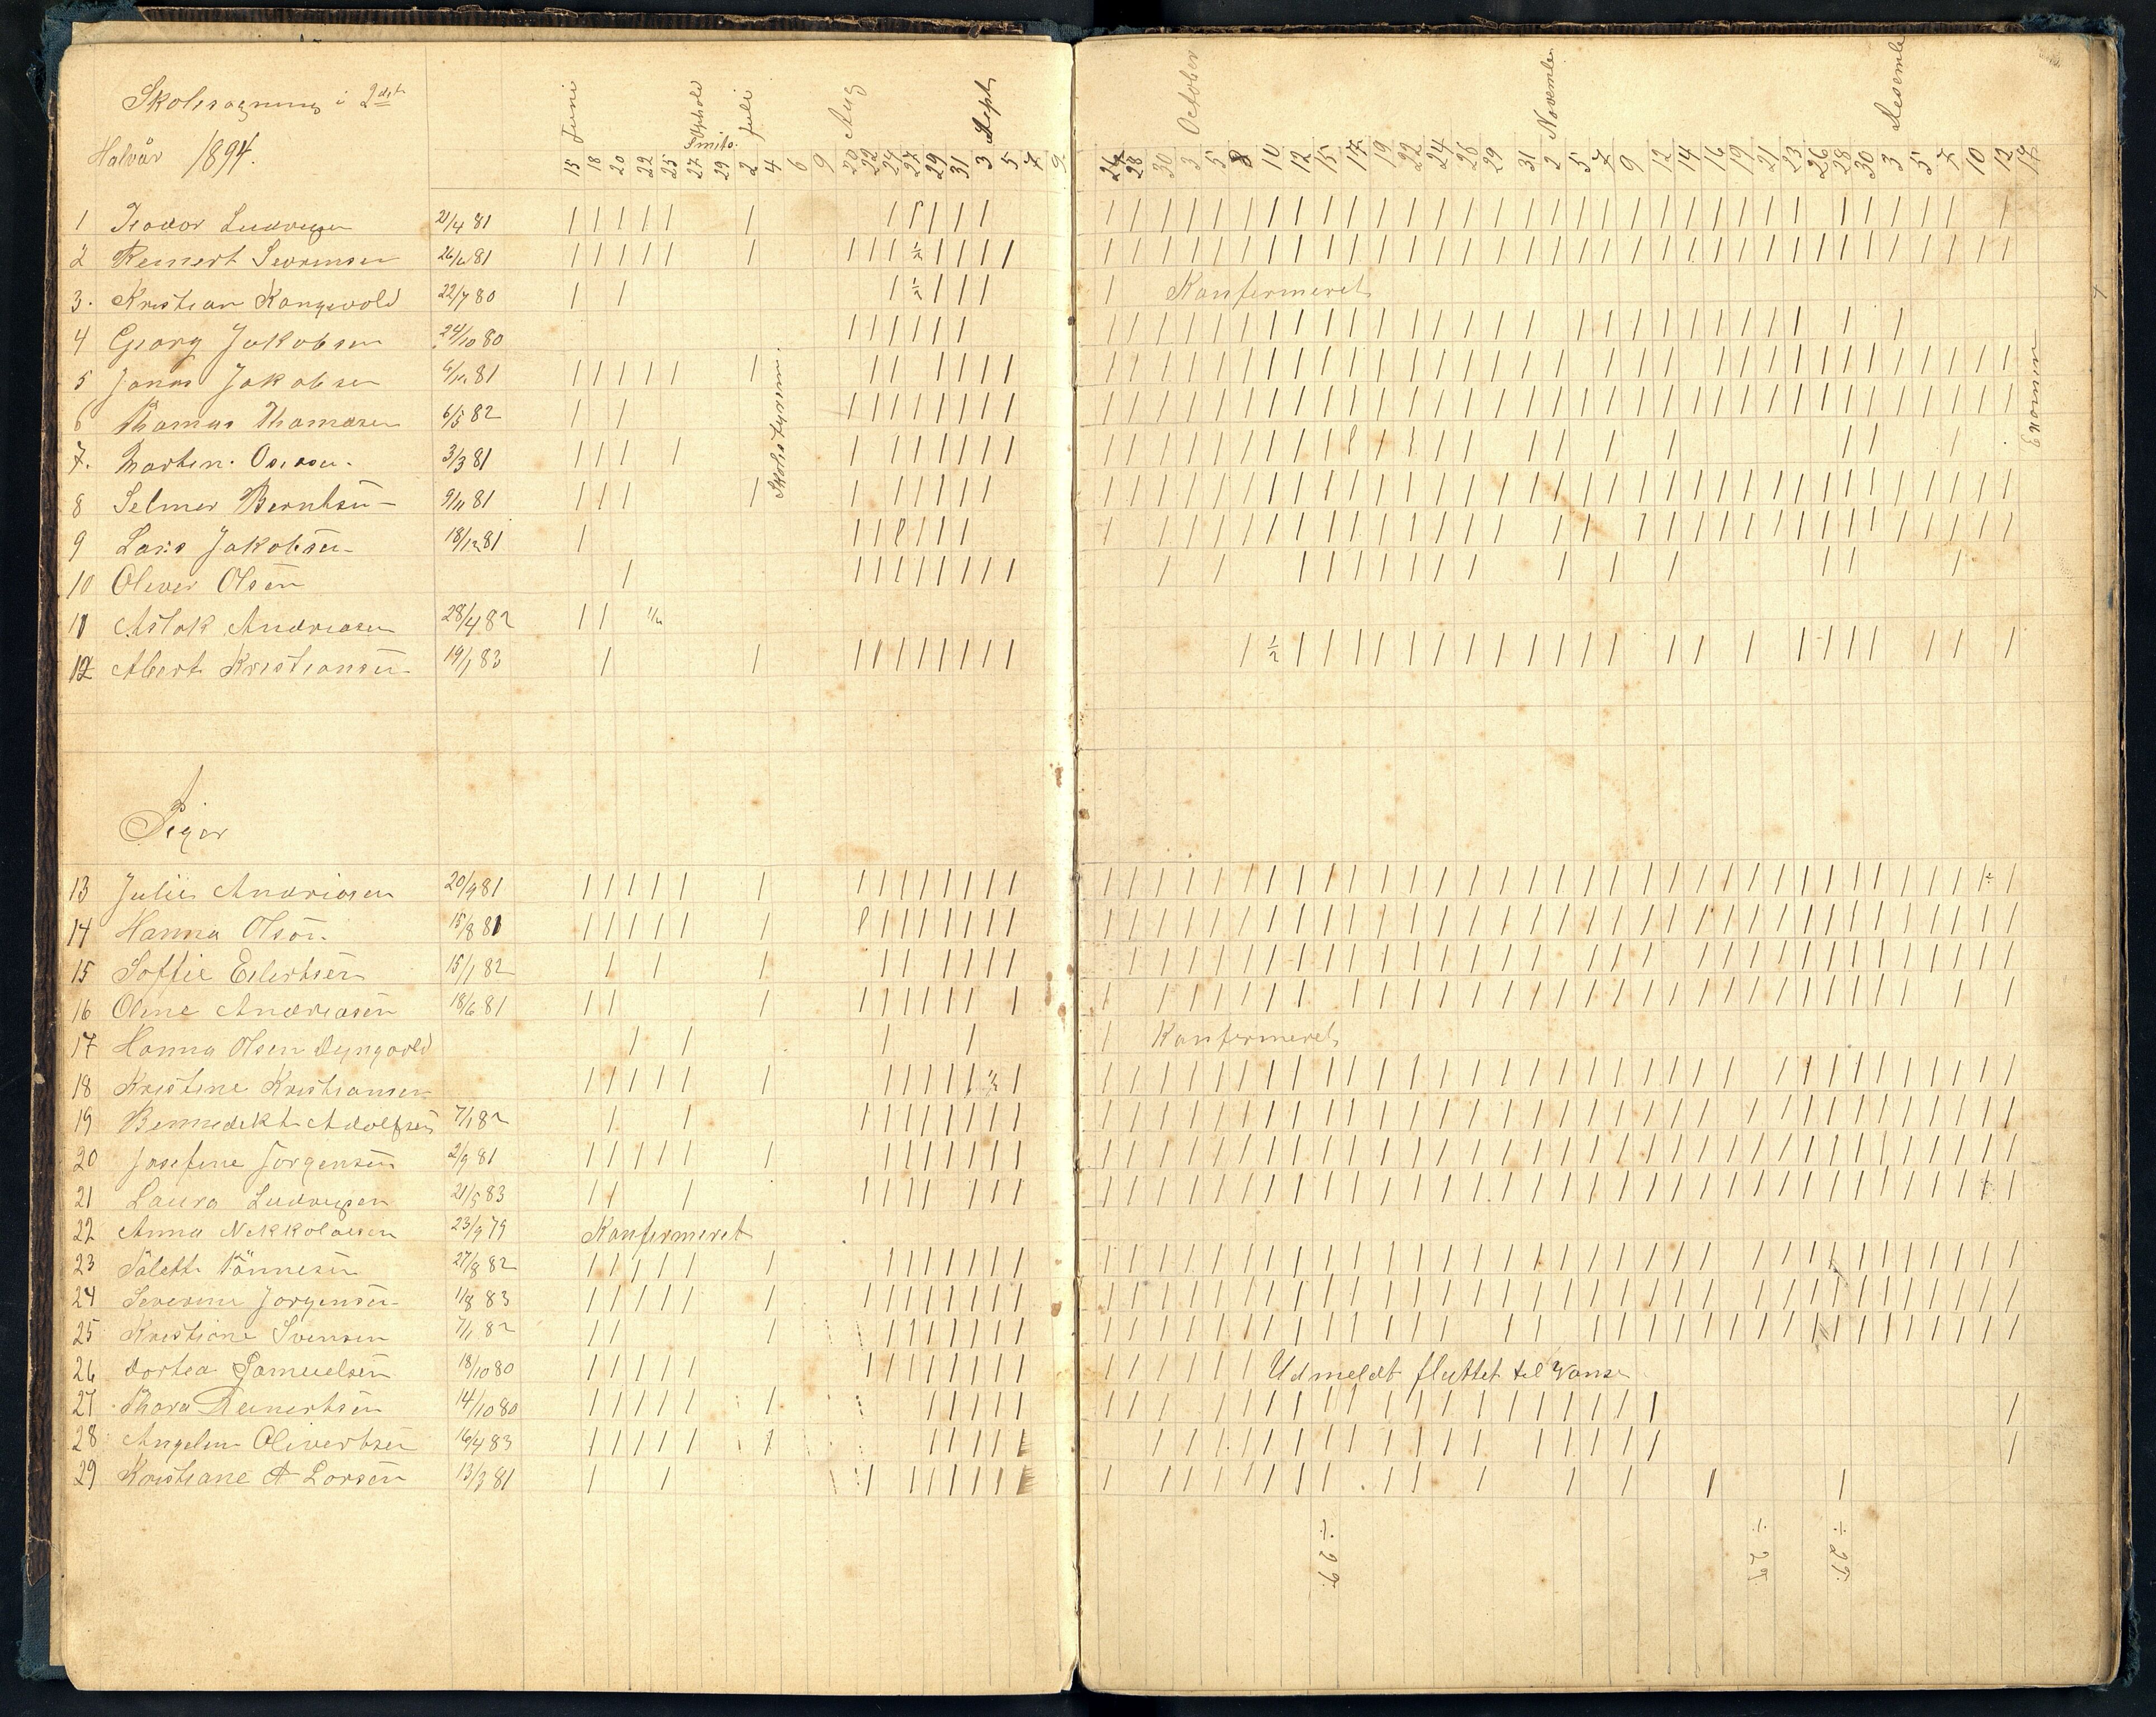 Skolesøgning i 2det
Halvår 1894.
Juni
Ophold
Smits.
Juli
Aug
Sept
15 18 20 22 25 27 29 2 4 6 9 20 22 24 27 29 31 3 5 7 9
October
November
Desember
26 28 30 3 5 8 10 12 15 17 19 22 24 26 29 31 2 5 7 9 12 14 16 19 21 23 26 28 30 3 5 7 10 12 14
1 Teodor Ludvigsen 21/4 81
2 Reinert Severinsen 26/6 81
3. Kristian Kongsvold 22/7 80 Konfermeret
4 Georg Jakobsen 24/10 80
5 Jonas Jakobsen 81
6 Thomas Thomasen 6/5 82
7. Martin 3/3 81
8 Selmer Berntsen 9/11 81
9 Lars Jakobsen 18/12 81
10 Oliver Olsen
11 Aslak Andreasen 28/4 82
12 Albert Kristiansen 19/1 83
Skolestyremøde
Examen
Piger
13 Julie Andreasen 20/9 81
14 Hanna Olsen 15/8 81
15 Soffie Eilertsen 15/1 82
16 Oline Andreasen 18/6 81
17 Hanna Olsen Dyngvold Konfermeret
18 Kristine Kristiansen
19 Bennedikte Adolfsen 7/1 82
20 Josefine Jørgensen 2/9 81
21 Laura Ludvigsen 21/5 83
22 Anna Nikkolaisen 23/9 79 Konfermeret
23 Tønnesen 27/8 82
24 Severine Jørgensen 11/8 83
25 Kristiane Svensen 7/1 82
26 Dortea Samuelsen 18/10 80 Udmeldt flyttet til Vanse
27 Thora Reinertsen 14/10 80
28 Angeline Olivertsen 16/4 83
29 Kristiane A Larsen 13/3 81
÷ 29.
÷ 29
÷ 29.